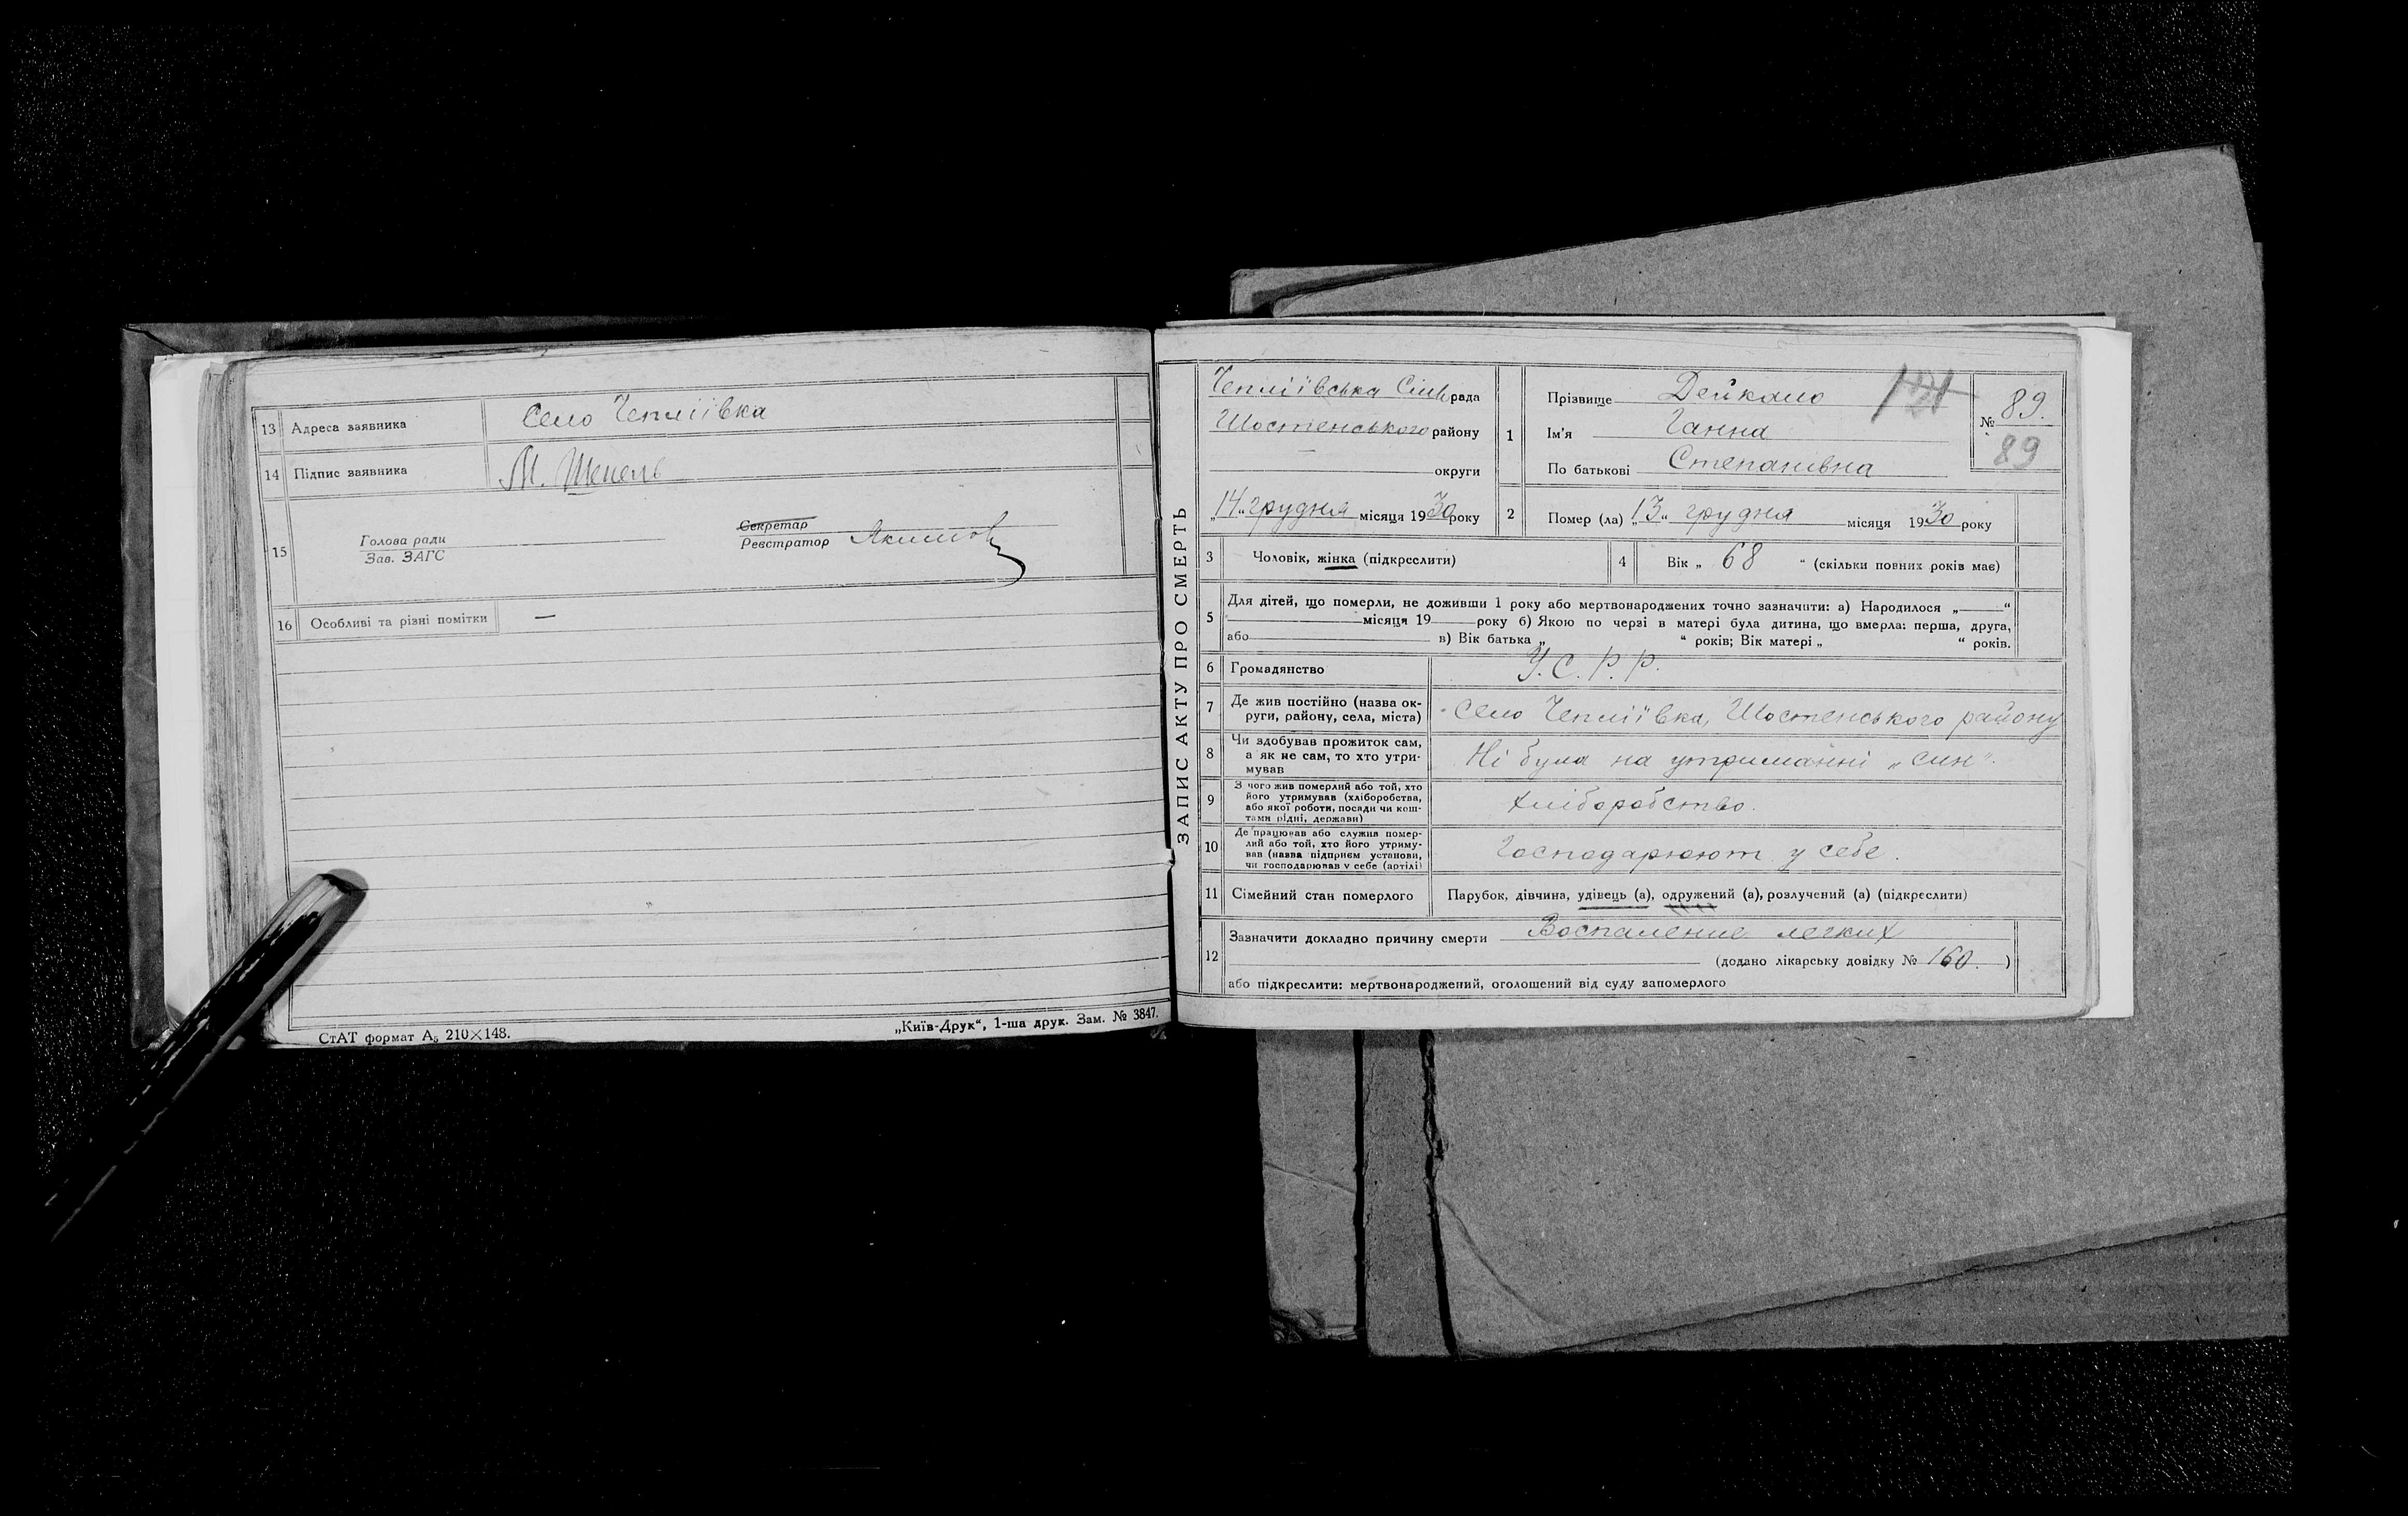 13 Адреса заявника Село Чепліївка
14 Підпис заявника М. Шепель
15 Голова ради
Зав. ЗАГС
Секретар
Реєстратор
16 Особливі та різні помітки —
СтАТ формат А₅ 210×148.
„Київ-Друк“, 1-ша друк. Зам. № 3847.
ЗАПИС АКТУ ПРО СМЕРТЬ
Чепліївська Сільрада
Шостенського району
— округи
„14“ грудня місяця 1930 року
1 Прізвище Дейкало
Ім'я Ганна
По батькові Степанівна
№ 89.
89
2 Помер (ла) „13“ грудня місяця 1930 року
3 Чоловік, жінка (підкреслити)
4 Вік „ 68 “ (скільки повних років має)
5 Для дітей, що померли, не доживши 1 року або мертвонароджених точно зазначити: а) Народилося „ “
місяця 19 року б) Якою по черзі в матері була дитина, що вмерла: перша, друга,
або в) Вік батька „ “ років; Вік матері „ “ років.
6 Громадянство У.С.Р.Р.
7 Де жив постійно (назва ок-
руги, району, села, міста) Село Чепліївка, Шостенського району
8 Чи здобував прожиток сам,
а як не сам, то хто утри-
мував Ні була на утриманні „син“.
9 З чого жив померлий або той, хто
його утримував (хліборобства,
або якої роботи, посади чи кош-
тами рідні, держави) Хліборобство.
10 Де працював або служив помер-
лий або той, хто його утриму-
вав (назва підприєм установи,
чи господарював у себе (артілі) Господарюют у себе.
11 Сімейний стан померлого Парубок, дівчина, удівець (а), одружений (а), розлучений (а) (підкреслити)
12 Зазначити докладно причину смерти Воспаление легких
(додано лікарську довідку № 160. )
або підкреслити: мертвонароджений, оголошений від суду запомерлого